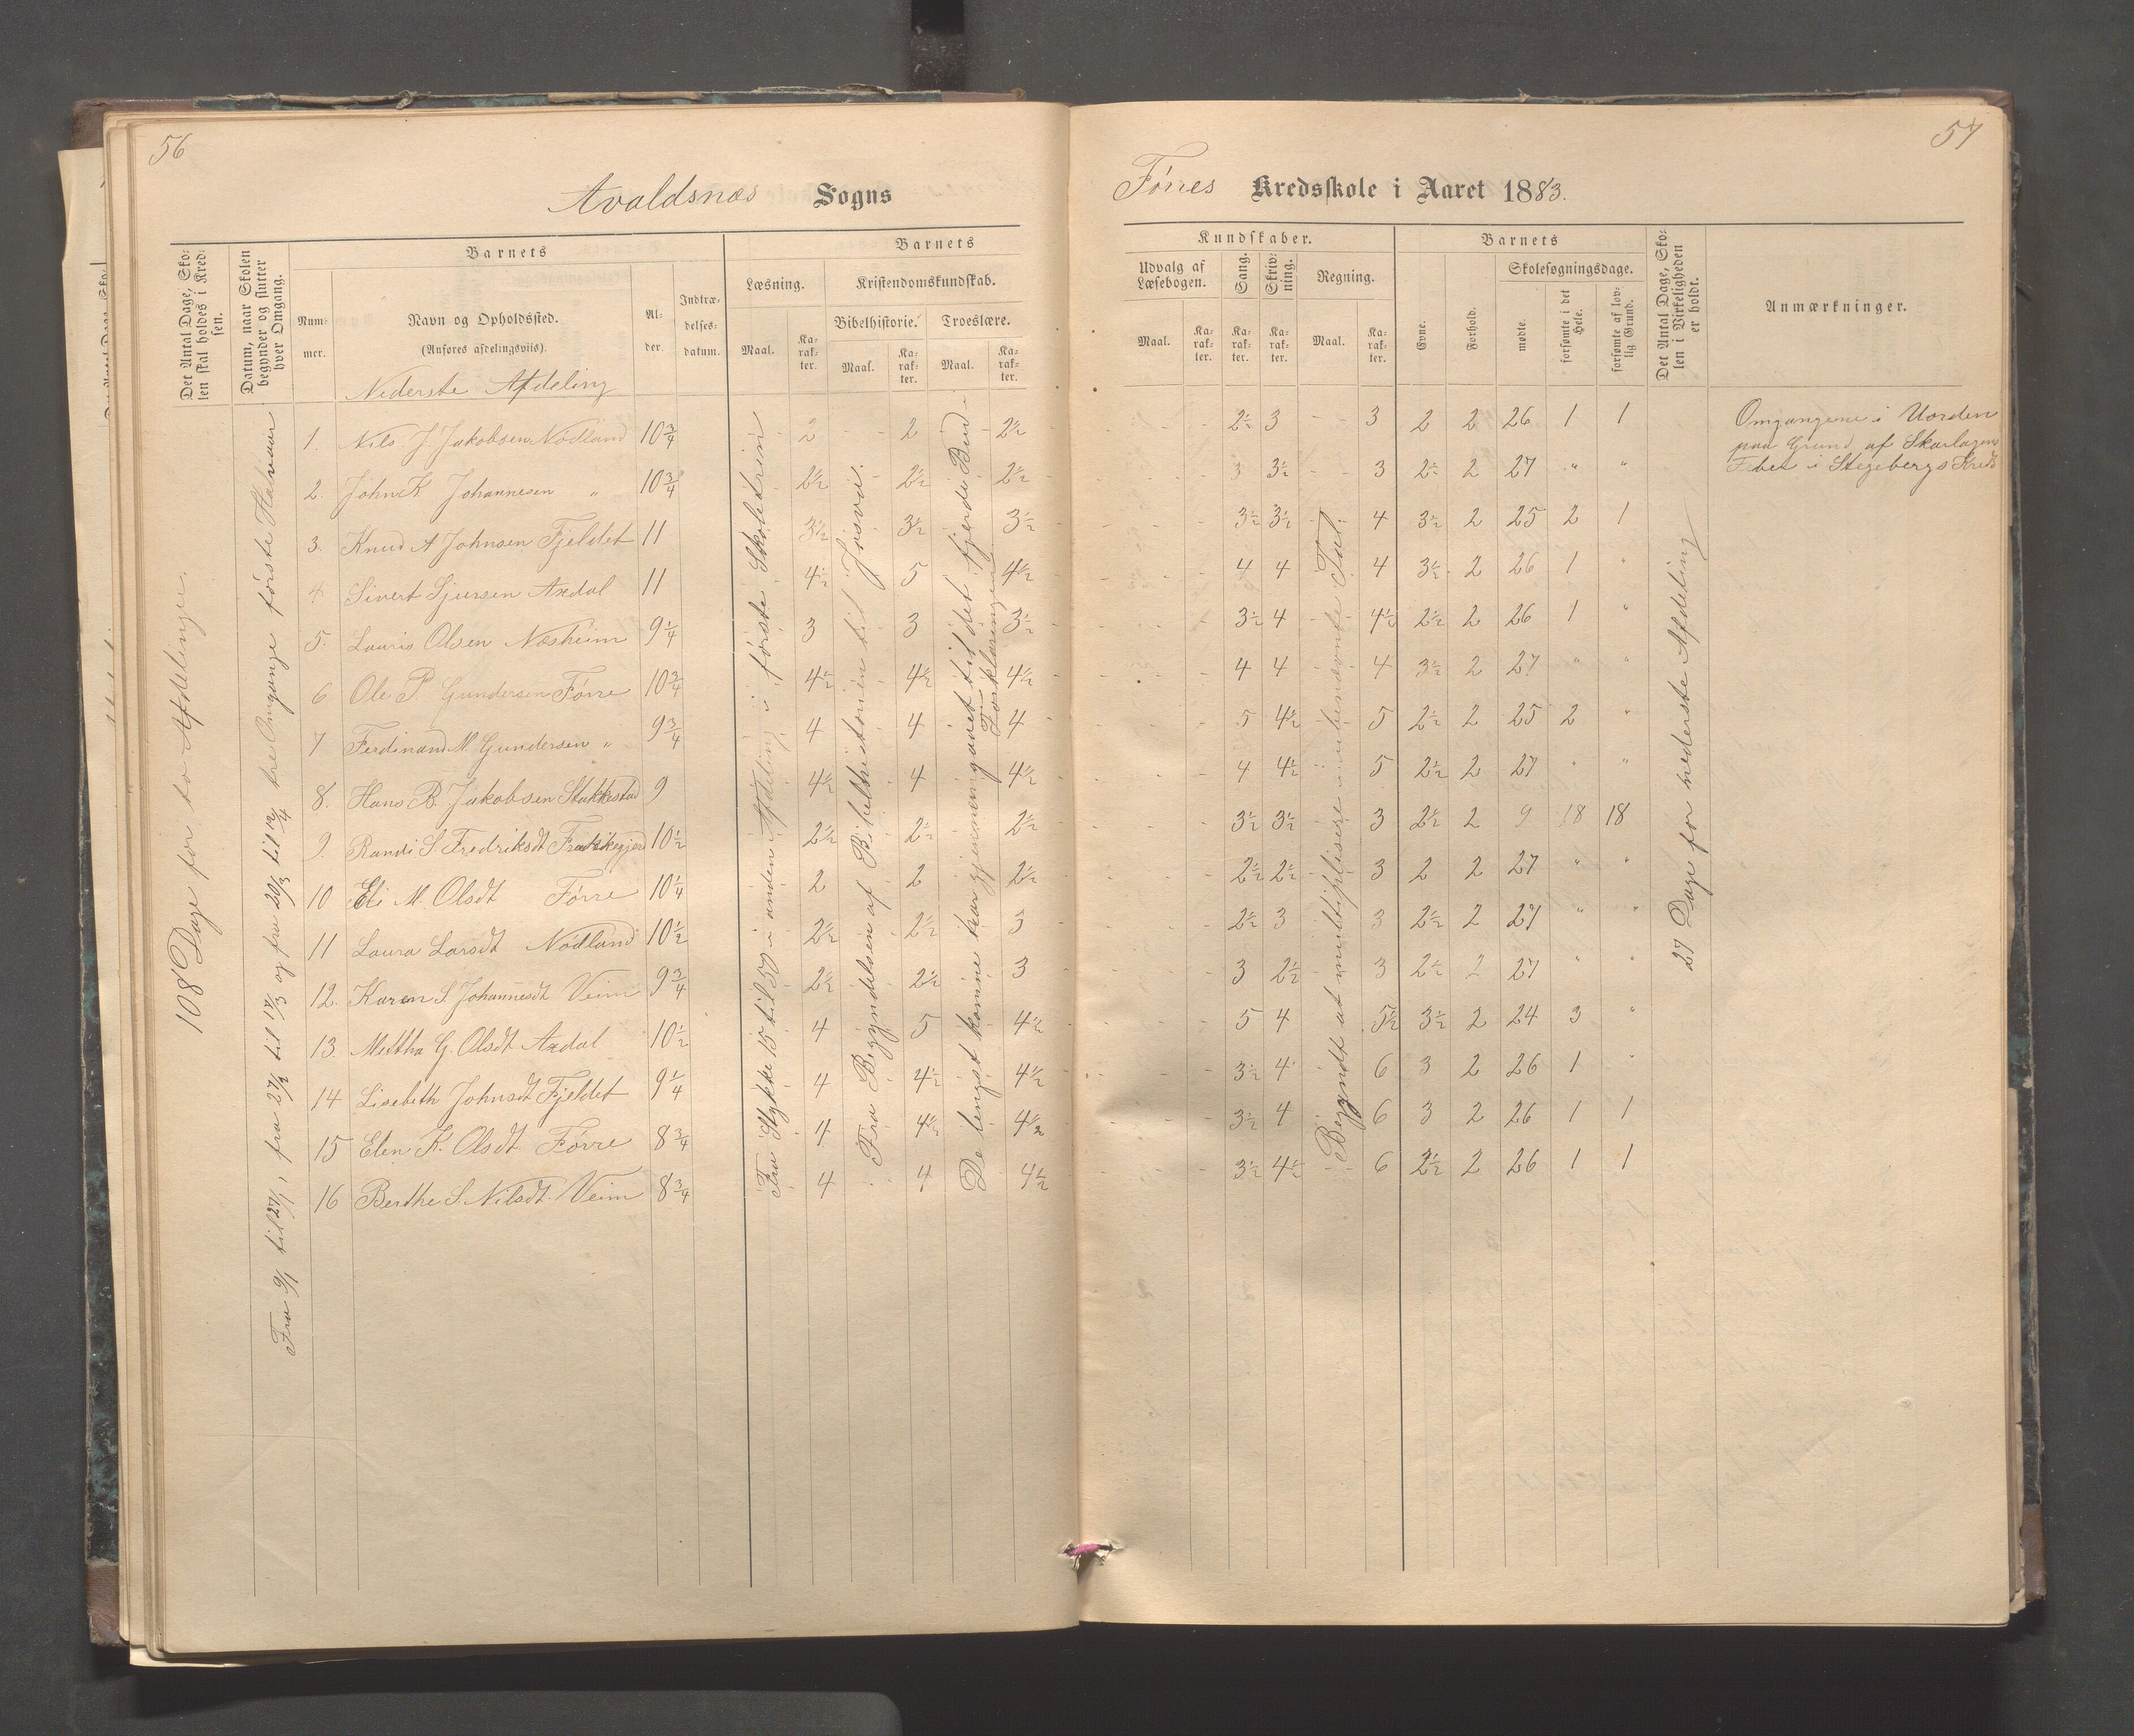 56
Avaldsnæs Sogns
Det Antal Dage, Sko-
len skal holdes i Kred-
sen.
Datum, naar Skolen
begynder og slutter
hver Omgang.
Barnets
Num-
mer.
Navn og Opholdssted.
(Anføres afdelingsviis).
Al-
der.
Indtræ-
delses-
datum.
Barnets
Læsning.
Maal.
Ka-
rak-
ter.
Kristendomskundskab.
Bibelhistorie.
Maal.
Ka-
rak-
ter.
Troeslære.
Maal.
Ka-
rak-
ter.
Nederste Afdeling
108 Dage for to Afdelinger.
Fra 9/1 til 27/1, fra 27/2 til 17/3 og fra 20/3 til 12/4 tre Omgange første Halvaar
1. Nils J. Jakobsen Nodland 10 3/4 2 2 2 1/2
2. John K Johannesen " 10 3/4 2 1/2 2 1/2 2 1/2
3. Knud A Johnsen Fjeldet 11 3 1/2 3 1/2 3 1/2
4 Sivert Sjursen Axdal 11 4 1/2 5 4 1/2
5. Lauris Olsen Næsheim 9 1/4 3 3 3 1/2
6 Ole P. Gundersen Førre 10 3/4 4 1/2 4 1/2 4 1/2
7 Ferdinand M Gundersen " 9 3/4 4 4 4
8. Hans B. Jakobsen Stakkestad 9 4 1/2 4 4 1/2
9. Randi S. Fredriksdt 10 1/2 2 1/2 2 1/2 2 1/2
10 Eli M. Olsdt Førre 10 1/4 2 2 2 1/2
11 Laura Larsdt Nodland 10 1/2 2 1/2 2 1/2 3
12. Karen S. Johannesdt Veim 9 3/4 2 1/2 2 1/2 3
13. Mettha G. Olsdt Axdal 10 1/2 4 5 4 1/2
14 Lisebeth Johnsdt Fjeldet 9 1/4 4 4 1/2 4 1/2
15 Elen K. Olsdt Førre 8 3/4 4 4 1/2 4 1/2
16 Berthe S. Nilsdt. Veim 8 3/4 4 4 4 1/2
Fra Stykke 15 til 50 i anden Afdeling i første Skoletrin
Fra Begyndelsen af Bibelhistorien til Josva.
De lengst komne har gjennemgaaet til det fjerde Bud i
Forklaringen
57
Førres Kredsskole i Aaret 1883.
Kundskaber.
Udvalg af
Læsebogen.
Maal.
Ka-
rak-
ter.
Sang.
Ka-
rak-
ter.
Skriv-
ning.
Ka-
rak-
ter.
Regning.
Maal.
Ka-
rak-
ter.
Barnets
Evne.
Forhold.
Skolesøgningsdage.
mødte.
forsømte i det
Hele.
forsømte af lov-
lig Grund.
Det Antal Dage, Sko-
len i Virkeligheden
er holdt.
Anmærkninger.
2 1/2 3 3 2 2 26 1 1
3 3 1/2 3 2 1/2 2 27 " "
3 1/2 3 1/2 4 3 1/2 2 25 2 1
4 4 4 3 1/2 2 26 1 "
3 1/2 4 4 1/2 2 1/2 2 26 1 "
4 4 4 3 1/2 2 27 " "
5 4 1/2 5 2 1/2 2 25 2 "
4 4 1/2 5 2 1/2 2 27 " "
3 1/2 3 1/2 3 2 1/2 2 9 18 18
2 1/2 2 1/2 3 2 2 27 " "
2 1/2 3 3 2 1/2 2 27 " "
3 2 1/2 3 2 1/2 2 27 " "
5 4 5 1/2 3 1/2 2 24 3 "
3 1/2 4 6 3 2 26 1 "
3 1/2 4 6 3 2 26 1 1
3 1/2 4 1/2 6 2 1/2 2 26 1 1
Begyndt at multiplisere ubenævnte Tal.
27 Dage for nederste Afdeling
Omgangene i Uorden
paa Grund af Skarlagens
Feber i Stegebergs Kreds